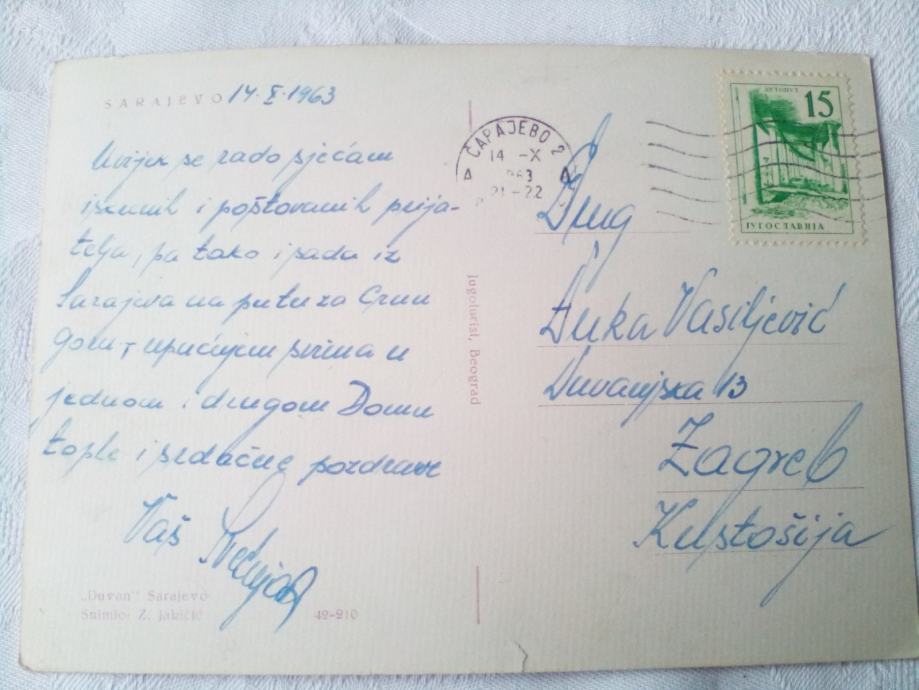 SARAJEVO 14·X·1963
Uvijek se rado sjećam
iskrenih i poštovanih prija-
telja, pa tako i sada iz
Sarajeva na putu za Crnu
goru - upućujem svima u
jednom i drugom Domu
tople i srdačne pozdrave
Vaš
„Duvan" Sarajevo
Snimio: Z. Jakičić
42-210
Jugoturist, Beograd
САРАЈЕВО 2
14 -X
963
21-22
АУТОПУТ
15
ЈУГОСЛАВИЈА
Drug
Đuka Vasiljević
Duvanjska 13
Zagreb
Kustošija